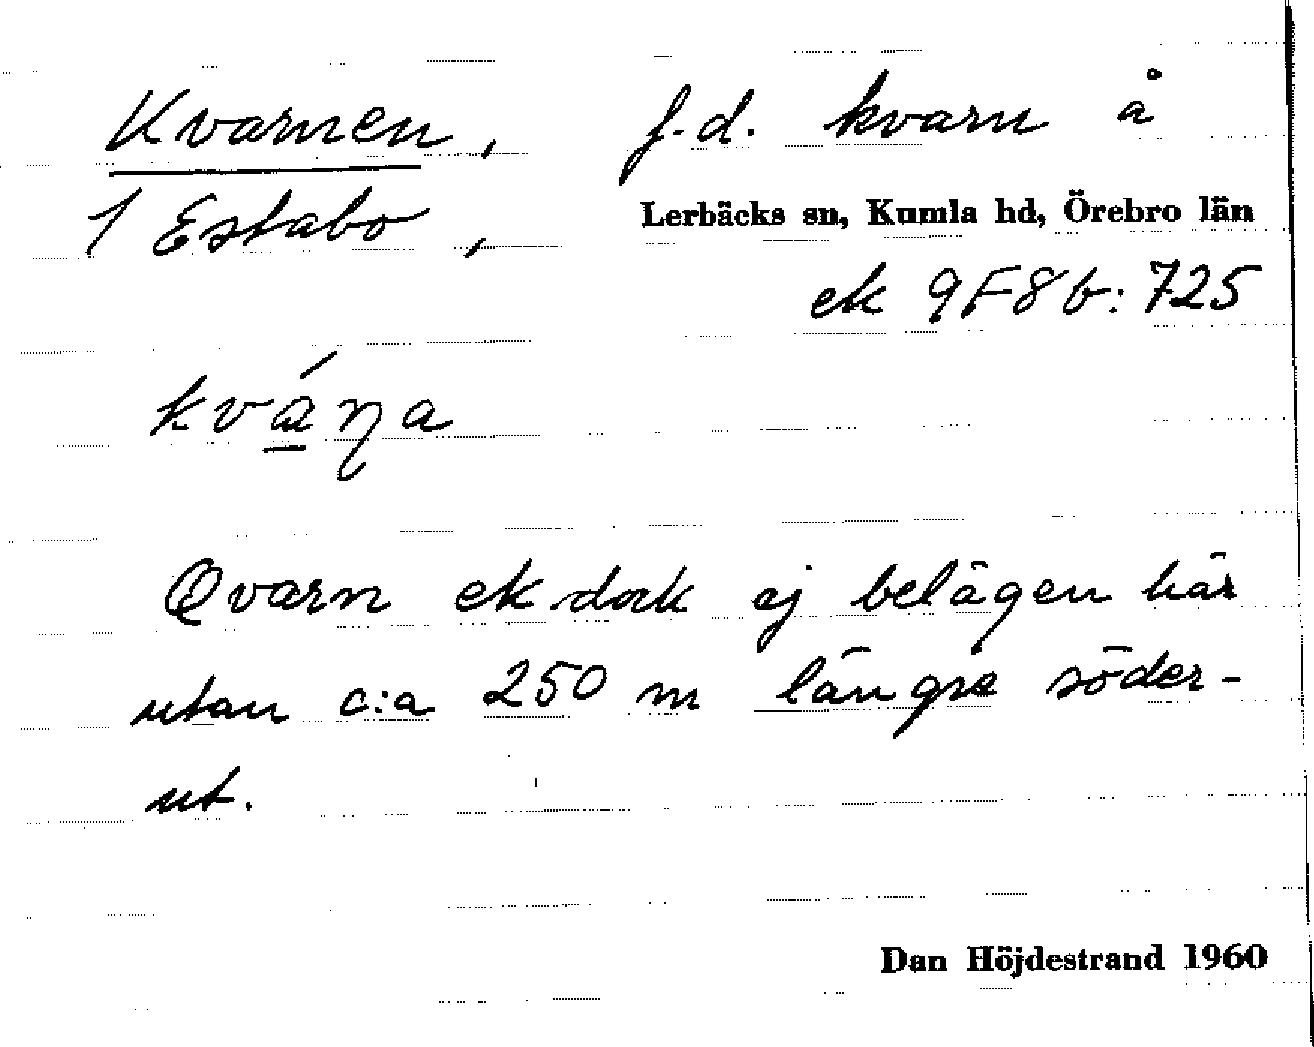 Kvarnen, f.d. kvarn å
1 Estabo, Lerbäcks sn, Kumla hd, Örebro län
ek 9F8b:725
kvána
Qvarn ek dock ej belägen här
utan c:a 250 m längre söder-
ut.
Dan Höjdestrand 1960